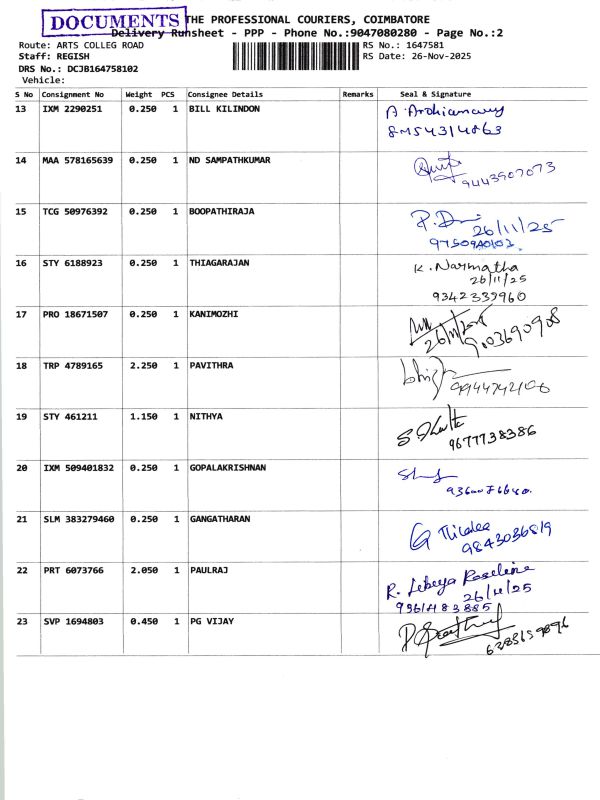 DOCUMENTS
THE PROFESSIONAL COURIERS, COIMBATORE
Delivery Runsheet - PPP - Phone No.:9047080280 - Page No.:2
Route: ARTS COLLEG ROAD
RS No.: 1647581
Staff: REGISH
RS Date: 26-Nov-2025
DRS No.: DCJB164758102
Vehicle:
S No Consignment No Weight PCS Consignee Details Remarks Seal & Signature
13 IXM 2290251 0.250 1 BILL KILINDON
14 MAA 578165639 0.250 1 ND SAMPATHKUMAR
9443907073
15 TCG 50976392 0.250 1 BOOPATHIRAJA
26/11/25
16 STY 6188923 0.250 1 THIAGARAJAN
K. Narmatha
26/11/25
9342339960
17 PRO 18671507 0.250 1 KANIMOZHI
18 TRP 4789165 2.250 1 PAVITHRA
19 STY 461211 1.150 1 NITHYA
9677738386
20 IXM 509401832 0.250 1 GOPALAKRISHNAN
21 SLM 383279460 0.250 1 GANGATHARAN
9843036819
22 PRT 6073766 2.050 1 PAULRAJ
26/11/25
23 SVP 1694803 0.450 1 PG VIJAY